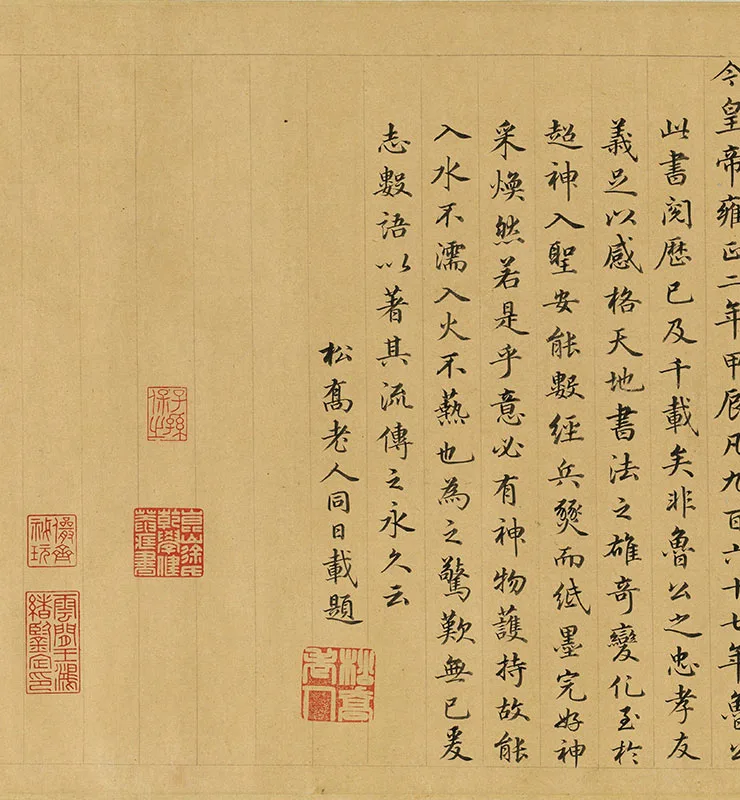 今皇帝雍正二年甲辰凡九百六十七年魯公
此書閱歷已及千載矣非魯公之忠孝友
義足以感格天地書法之雄奇變化至扵
超神入聖安能數經兵燹而紙墨完好神
采煥然若是乎意必有神物護持故能
入水不濡入火不爇也為之驚歎無已爰
志數語以著其流傳之永久云
松喬老人同日載題
松喬老人
子孫保之
崑山徐氏乾學健菴藏書
儼齋祕玩
雲間王鴻緒鑒定印